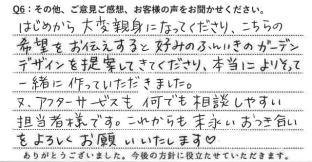 Q6：その他、ご意見ご感想、お客様の声をお聞かせください。
はじめから大変親身になってくださり、こちらの
希望をお伝えすると好みのふんいきのガーデン
デザインを提案してきてくださり、本当によりそって
一緒に作っていただきました。
又、アフターサービスも何でも相談しやすい
担当者様です。これからも末永いお つき合い
をよろしくお願いいたします♡
ありがとうございました。今後の方針に役立たせていただきます。